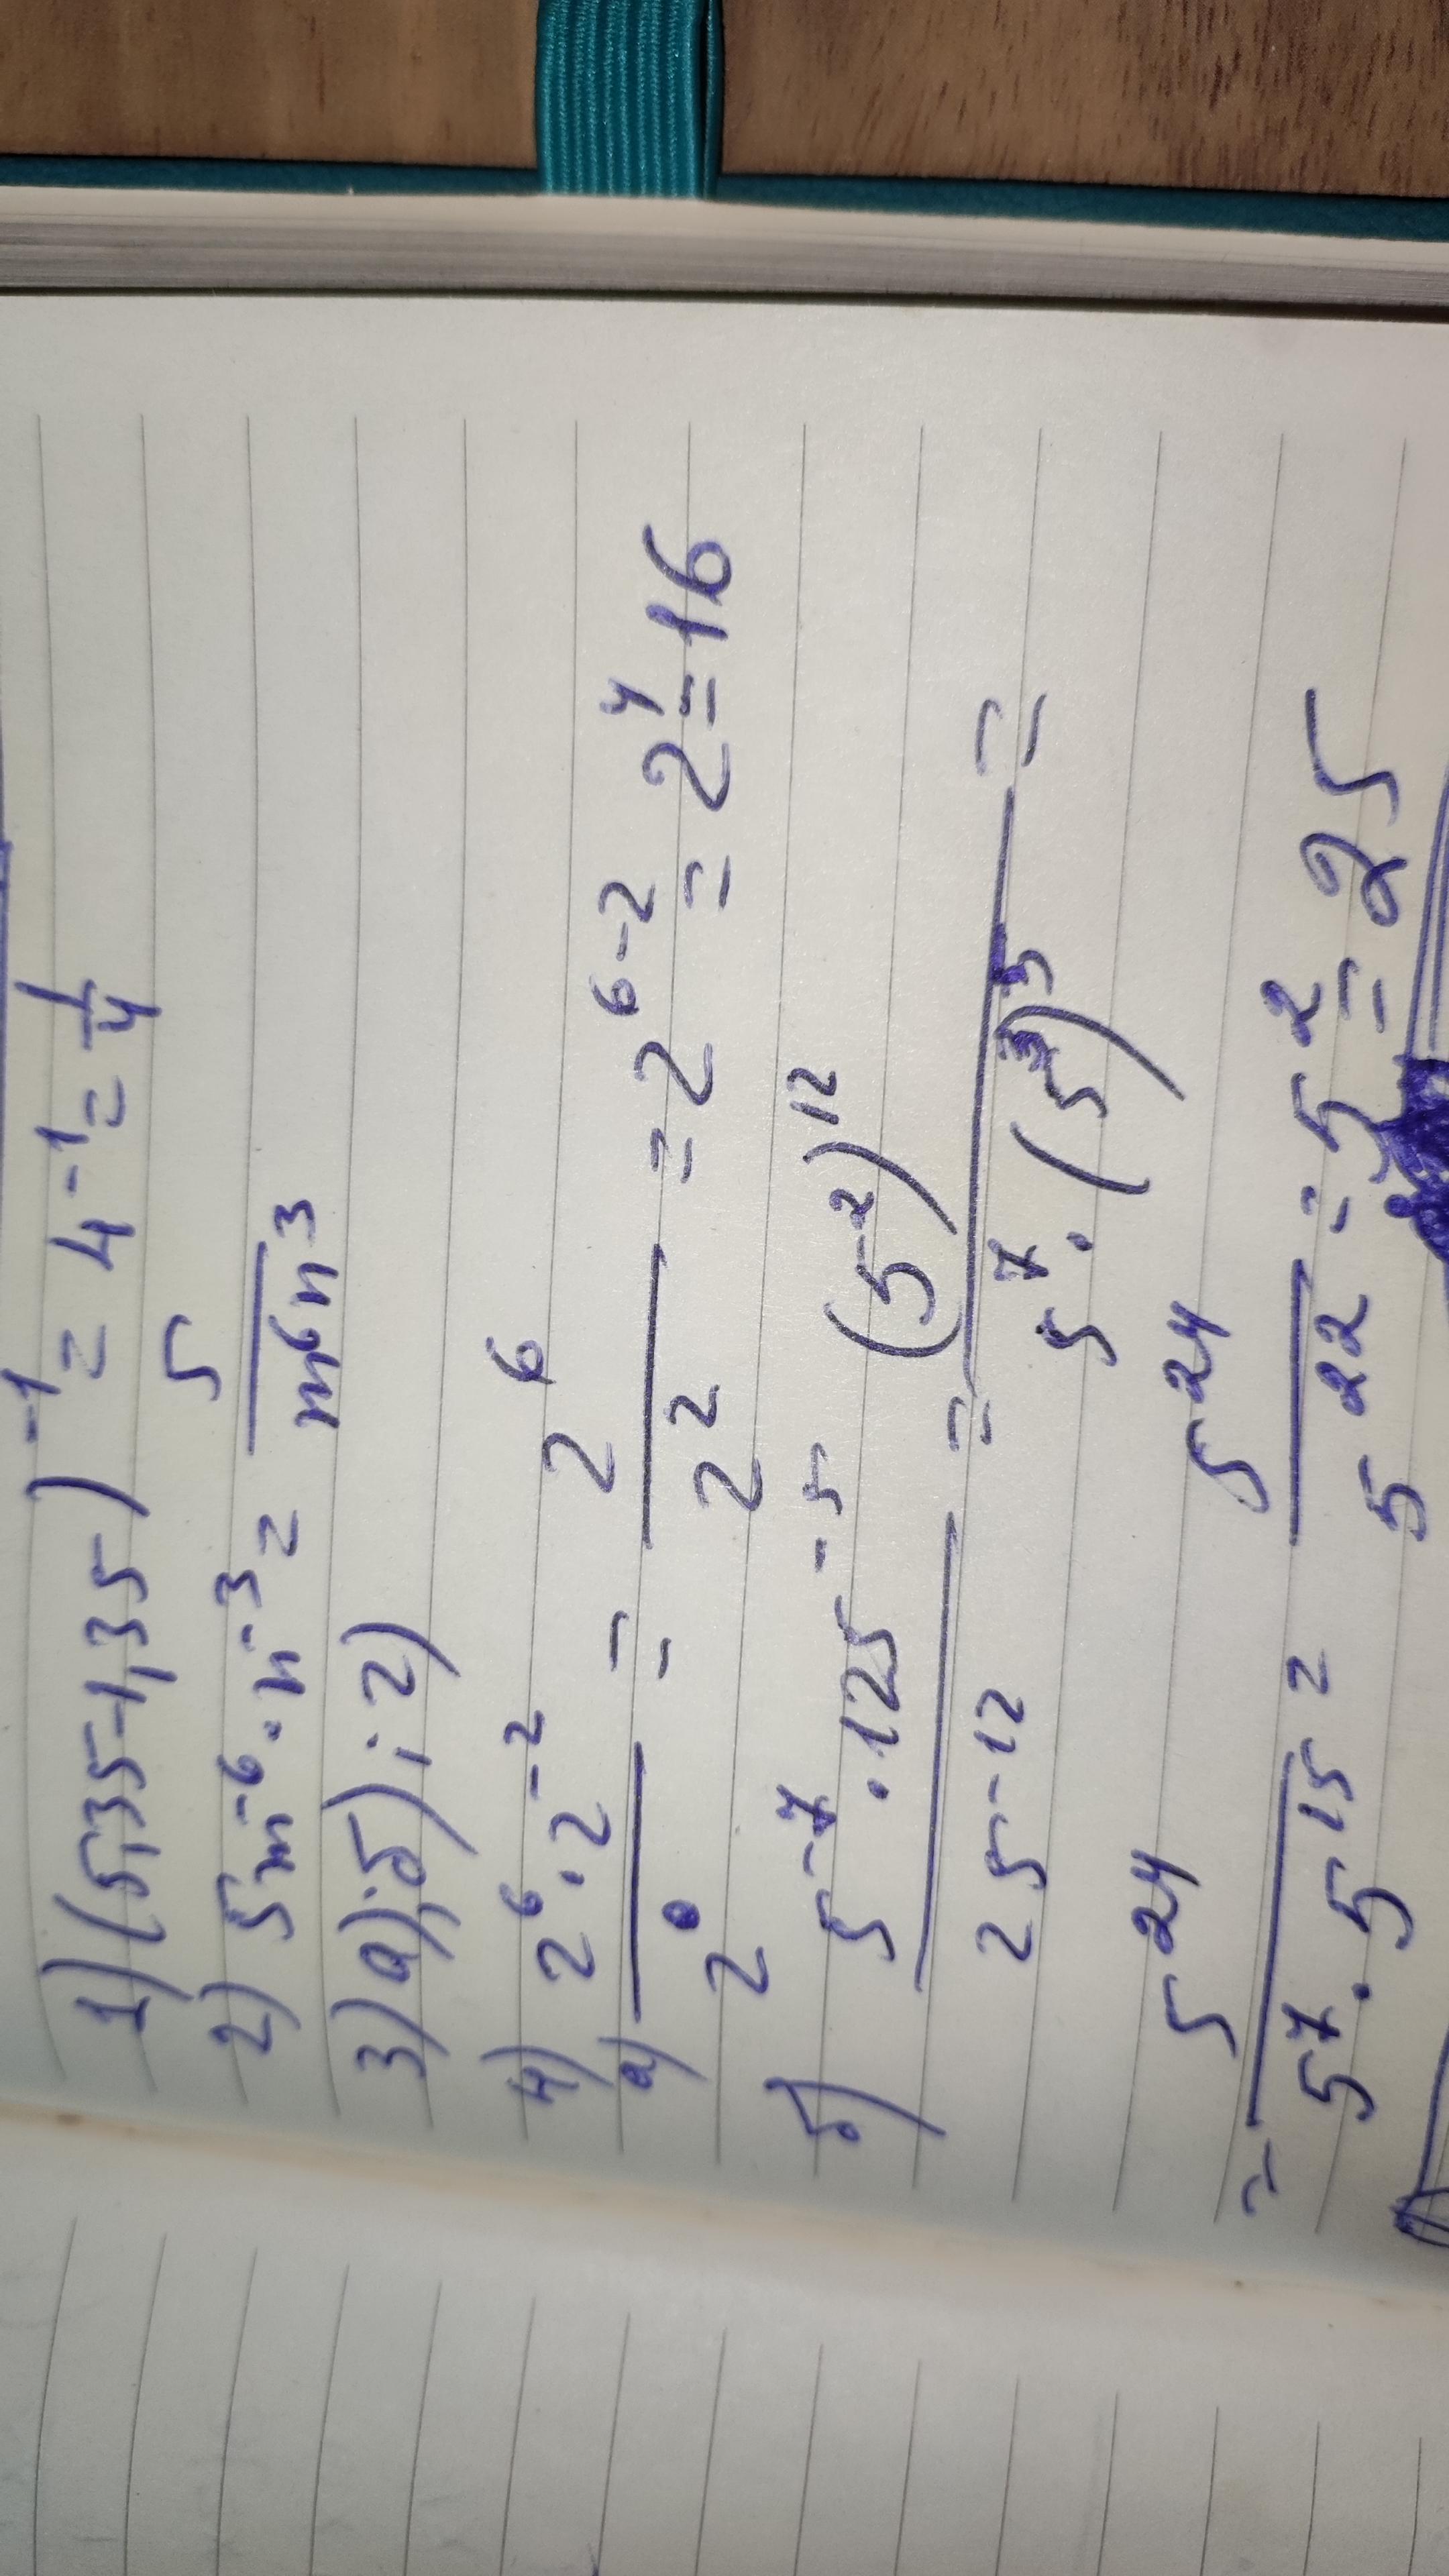 1) (5,35-1,35)⁻¹ = 4⁻¹ = 1/4
2) 5m⁻⁶·n⁻³ = 5/(m⁶n³)
3) а); б); г)
4)
а) (2⁶·2⁻²)/2⁰ = 2⁶/2² = 2⁶⁻² = 2⁴ = 16
б) (5⁻⁷·125⁻⁵)/25⁻¹² = (5²)¹²/(5⁷·(5³)⁵) =
= 5²⁴/(5⁷·5¹⁵) = 5²⁴/5²² = 5² = 25